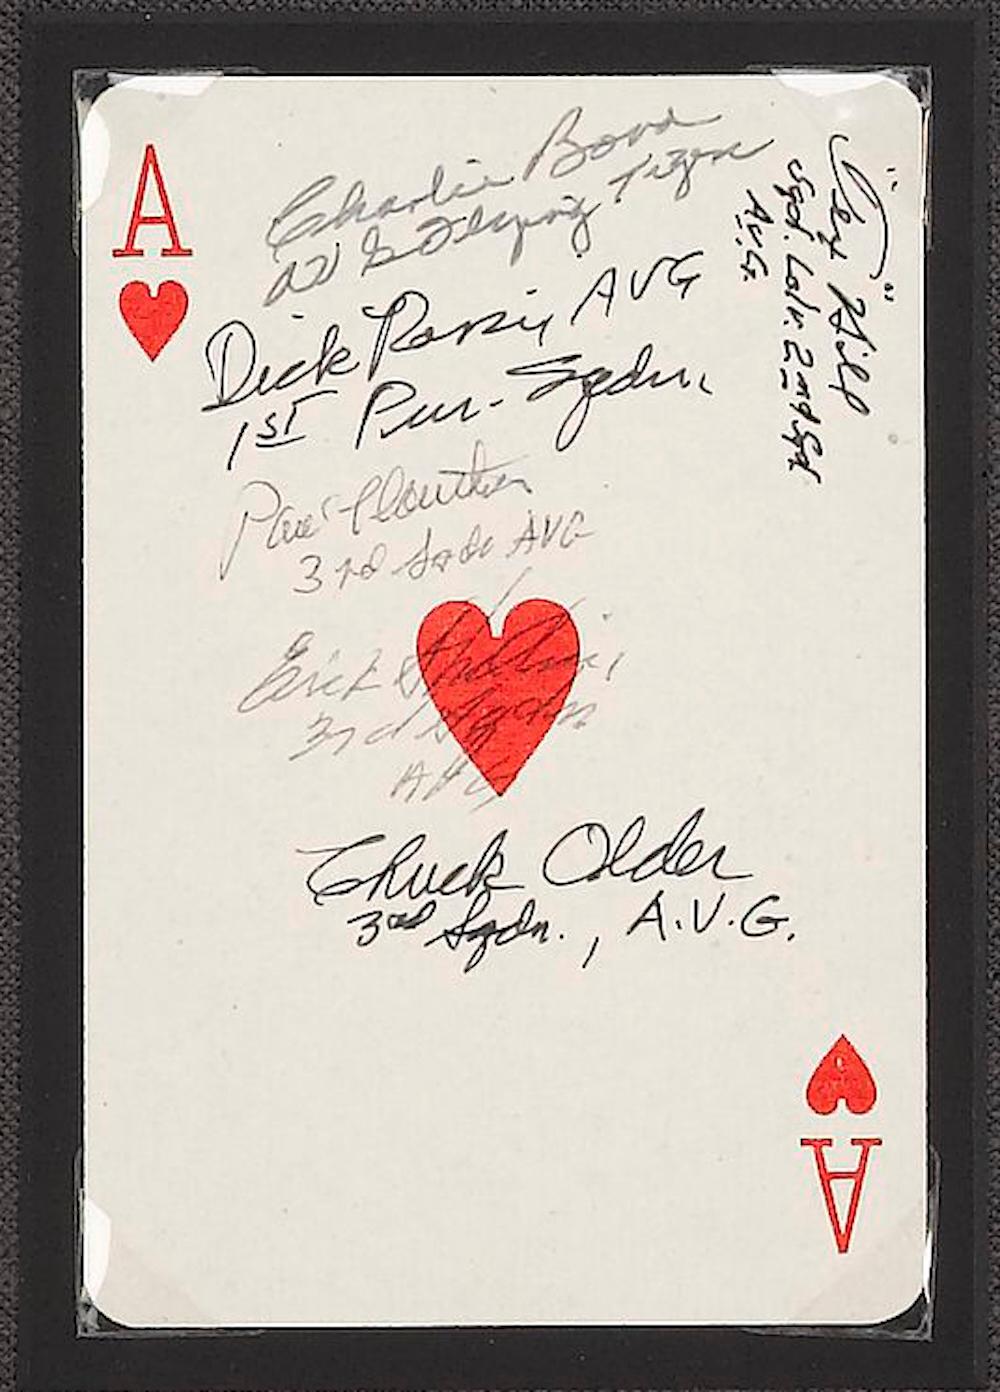 A
Charlie Bond
AVG Flying Tigers
Dick Rossi, AVG
1ST Pur. Sqdn.
"Tex Hill"
Sqd. Ldr. 2nd Sqd
AVG.
3rd Sqdn AVG
Erick Shilling
3rd Sqdn
AVG
Chuck Older
3rd Sqdn., A.V.G.
A